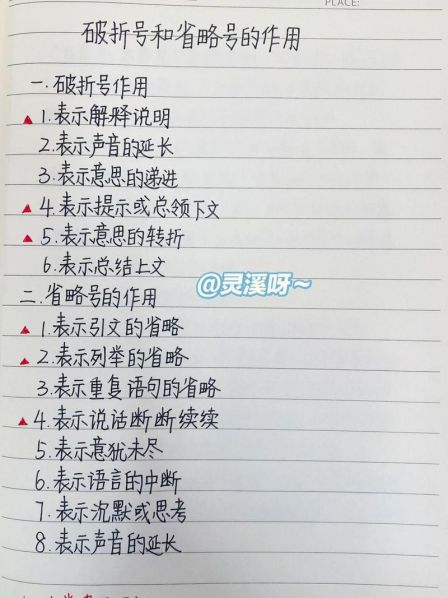 PLACE:
破折号和省略号的作用
一.破折号作用
▲1.表示解释说明
2.表示声音的延长
3.表示意思的递进
▲4.表示提示或总领下文
▲5.表示意思的转折
6.表示总结上文
@灵溪呀~
二.省略号的作用
▲1.表示引文的省略
▲2.表示列举的省略
3.表示重复语句的省略
▲4.表示说话断断续续
5.表示意犹未尽
6.表示语言的中断
7.表示沉默或思考
8.表示声音的延长